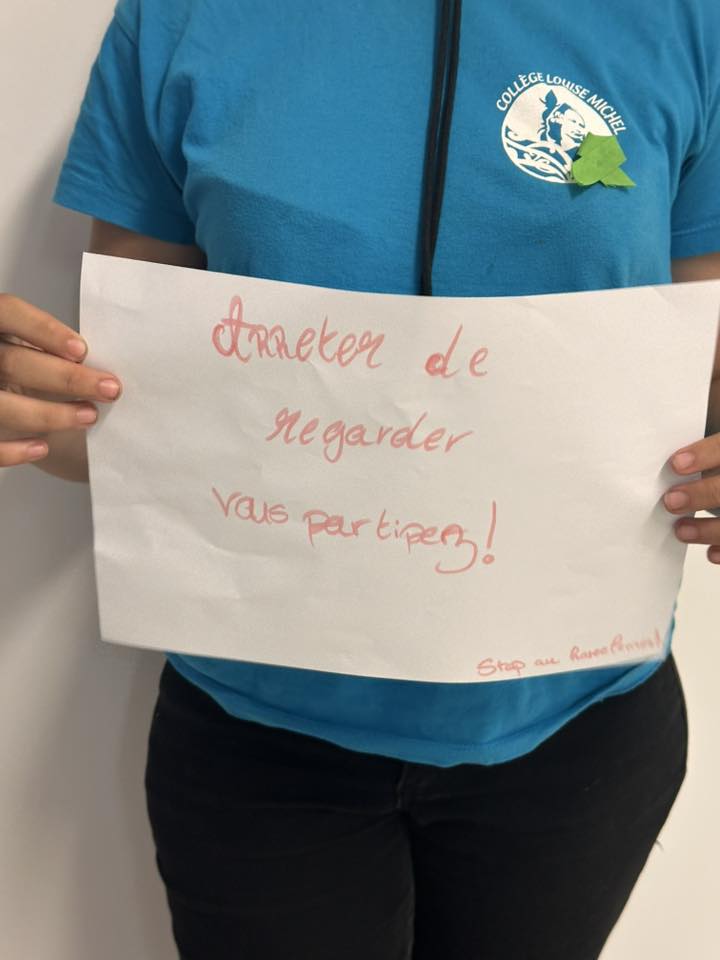 COLLÈGE LOUISE MICHEL
Arreter de
regarder
vous partiperz!
Stop au